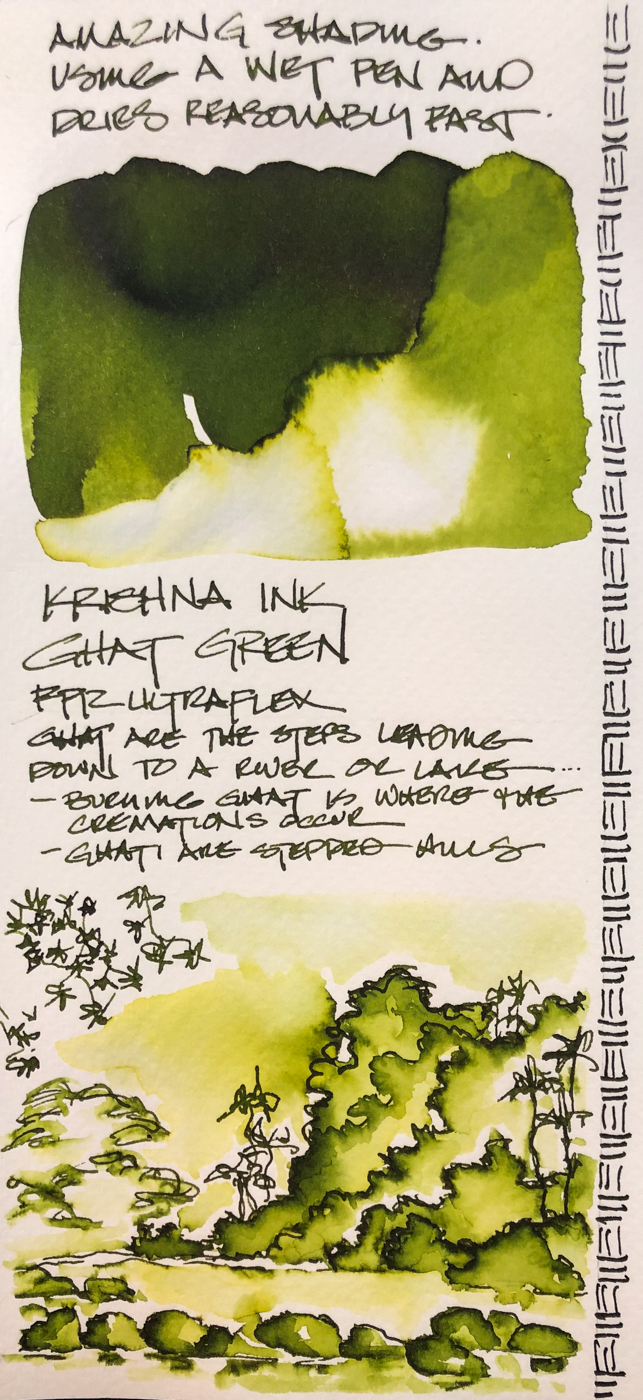 AMAZING SHADING.
USING A WET PEN AND
DRIES REASONABLY FAST.
KRISHNA INK
GHAT GREEN
FPR ULTRAFLEX
GHAT ARE THE STEPS LEADING
DOWN TO A RIVER OR LAKE...
- BURNING GHAT IS WHERE THE
CREMATIONS OCCUR
- GHATI ARE STEPPED HILLS